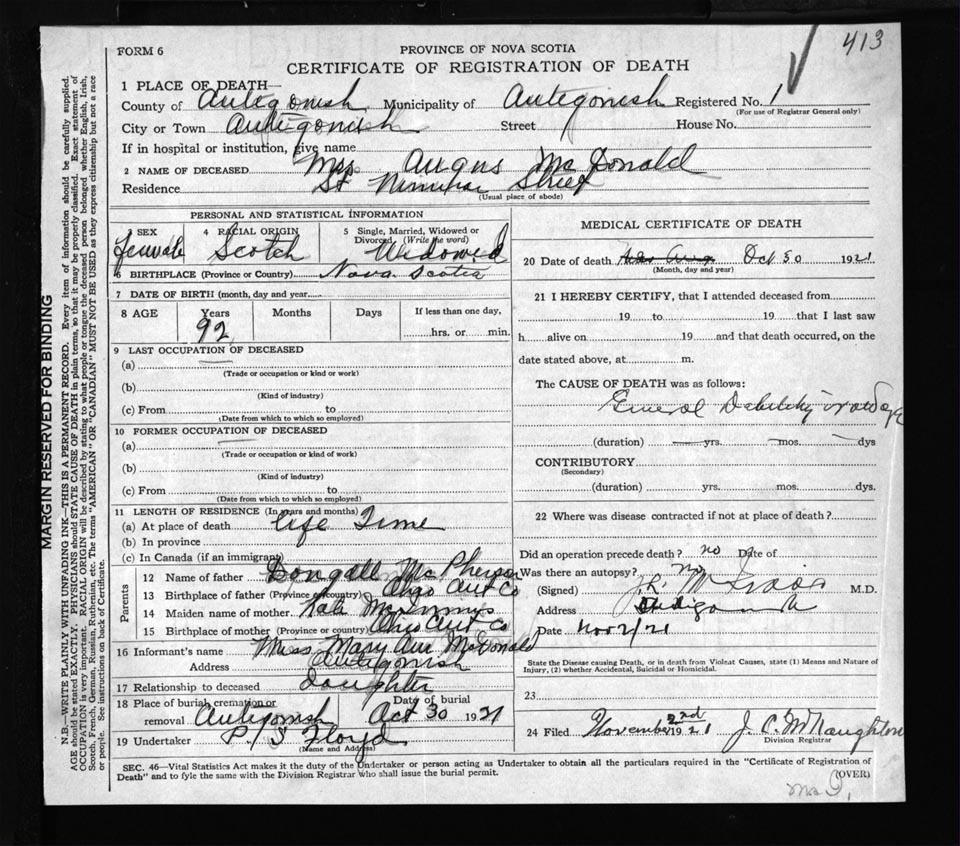 413
FORM 6
PROVINCE OF NOVA SCOTIA
CERTIFICATE OF REGISTRATION OF DEATH
1 PLACE OF DEATH—
County of Antigonish Municipality of Antigonish Registered No. 1
(For use of Registrar General only)
City or Town Antigonish Street House No.
If in hospital or institution, give name
2 NAME OF DECEASED Mrs Angus McDonald
Residence St Street
(Usual place of abode)
PERSONAL AND STATISTICAL INFORMATION
3 SEX Female
4 RACIAL ORIGIN Scotch
5 Single, Married, Widowed or Divorced (Write the word) Widowed
6 BIRTHPLACE (Province or Country) Nova Scotia
7 DATE OF BIRTH (month, day and year)
8 AGE Years 92 Months Days If less than one day, hrs. or min.
9 LAST OCCUPATION OF DECEASED
(a)
(Trade or occupation or kind or work)
(b)
(Kind of industry)
(c) From to
(Date from which to which so employed)
10 FORMER OCCUPATION OF DECEASED
(a)
(Trade or occupation or kind of work)
(b)
(Kind of industry)
(c) From to
(Date from which to which so employed)
11 LENGTH OF RESIDENCE (In years and months)
(a) At place of death life Time
(b) In province
(c) In Canada (if an immigrant)
Parents
12 Name of father Dougall McPherson
13 Birthplace of father (Province or country) Ohio Ant Co
14 Maiden name of mother Kate McInnnys
15 Birthplace of mother (Province or country) Ohio Ant Co
16 Informant's name Miss Mary Ann McDonald
Address Antigonish
17 Relationship to deceased Daughter
18 Place of burial, cremation or removal Antigonish Date of burial Oct 30 1921
19 Undertaker P/S Floyd
(Name and Address)
MEDICAL CERTIFICATE OF DEATH
20 Date of death Oct 30 1921
(Month, day and year)
21 I HEREBY CERTIFY, that I attended deceased from
19 to 19 that I last saw
h alive on 19 and that death occurred, on the
date stated above, at m.
The CAUSE OF DEATH was as follows:
General Debility old age
(duration) yrs. mos. dys
CONTRIBUTORY
(Secondary)
(duration) yrs. mos. dys.
22 Where was disease contracted if not at place of death?
Did an operation precede death? no Date of
Was there an autopsy? no
(Signed) M.D.
Address Antigonish
Date Nov 2/21
State the Disease causing Death, or in death from Violent Causes, state (1) Means and Nature of
Injury, (2) whether Accidental, Suicidal or Homicidal.
23
24 Filed November 2nd 1921 J. C. McNaughton
Division Registrar
SEC. 46—Vital Statistics Act makes it the duty of the Undertaker or person acting as Undertaker to obtain all the particulars required in the "Certificate of Registration of
Death" and to fyle the same with the Division Registrar who shall issue the burial permit.
(OVER)
MARGIN RESERVED FOR BINDING
N.B.—WRITE PLAINLY WITH UNFADING INK—THIS IS A PERMANENT RECORD. Every item of information should be carefully supplied.
AGE should be stated EXACTLY. PHYSICIANS should STATE CAUSE OF DEATH in plain terms, so that it may be properly classified. Exact statement of
OCCUPATION is very important. RACIAL ORIGIN will be described by stating to what people or tongue the deceased person belonged whether English, Irish,
Scotch, French, German, Russian, Ruthenian, etc. The terms "AMERICAN" OR "CANADIAN" MUST NOT BE USED as they express citizenship but not a race
or people. See instructions on back of Certificate.